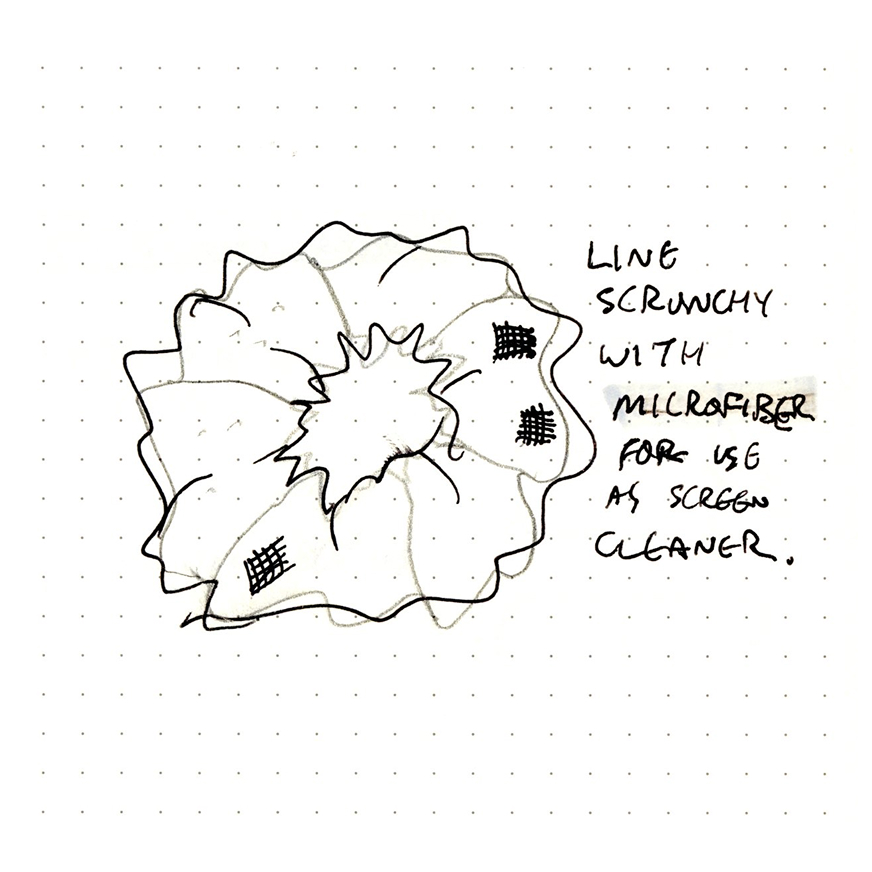 LINE
SCRUNCHY
WITH
MICROFIBER
FOR USE
AS SCREEN
CLEANER.